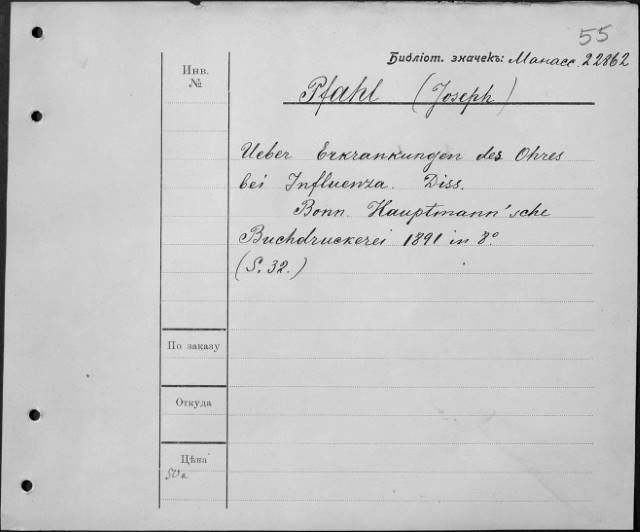 55
Библіот. значекъ: Манасс. 22862
Инв. №
Pfahl (Joseph)
Ueber Erkrankungen des Ohres
bei Influenza. Diss.
Bonn. Hauptmann'sche
Buchdruckerei 1891 in 8°
(S. 32.)
По заказу
Откуда
Цѣна